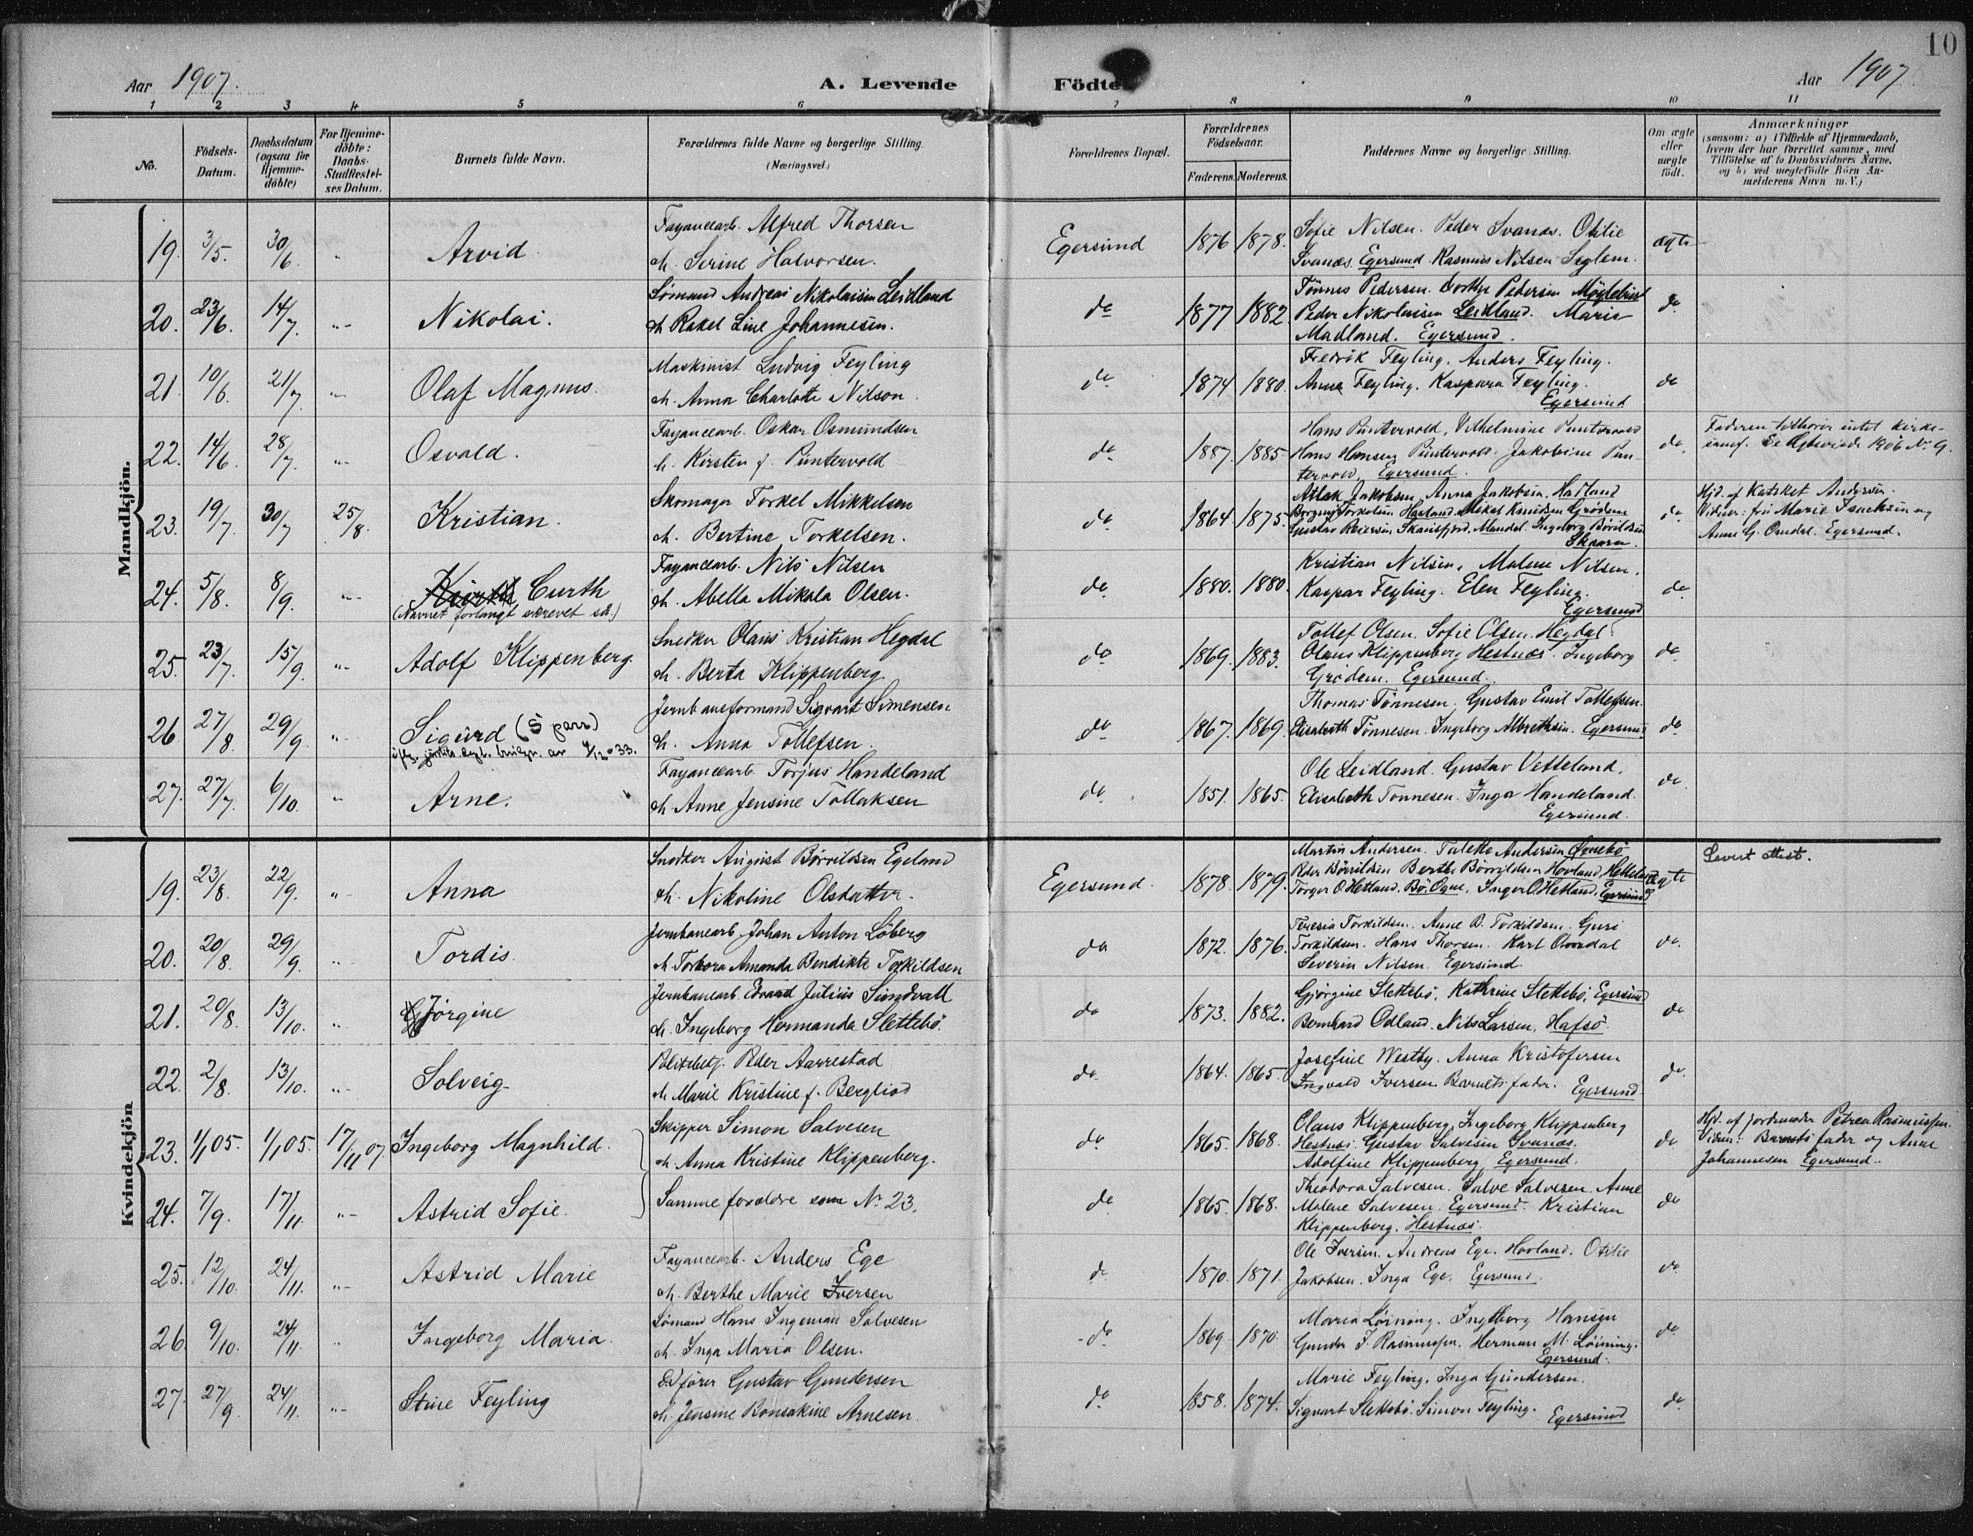 10
Aar 1907. A. Levende Födte. Aar 1907
1 2 3 4 5 6 7 8 9 10 11
No. Födsels-Datum. Daabsdatum (ogsaa for Hjemme-döbte) For Hjemme-döbte: Daabs-Stadfæstel-ses Datum. Barnets fulde Navn. Forældrenes fulde Navne og borgerlige Stilling. (Næringsvei.) Forældrenes Bopæl. Forældrenes Födselsaar. Faderens. Moderens. Faddernes Navne og borgerlige Stilling. Om ægte eller uægte födt. Anmærkninger (saasom: a) i Tilfælde af Hjemmedaab, hvem der har forrettet samme, med Tilföielse af to Daabsvidners Navne, og b) ved uægtefödte Börn An-melderens Navn m. V.)
Mandkjön.
19. 3/5. 30/6 Arvid Fayancearb. Alfred Thorsen Egersund 1876 1878. Sofie Nilsen. Peder Svanæs. Otilie ægte
Serine Halvorsen. Svanæs. Egersund. Rasmus Nilsen Seglem.
20. 23/6 14/7 Nikolai. Sömand Andreas Nikolaisen Leidland do 1877 1882 Tönnes Pedersen. Dorthe Pedersen do
Rakel Line Johannesen. Peder Nikolaisen Leidland. Marie
Madland. Egersund.
21. 10/6 21/7 Olaf Magnus. Maskinist Ludvig Feyling do 1874 1880. Fredrik Feyling. Anders Feyling. do
Anna Charlotte Nilson. Anna Feyling. Kaspara Feyling.
Egersund
22. 14/6 28/7 Osvald. Fayancearb. Oskar Osmundsen do 1887. 1885 Hans Puntervold, Vilhelmine Puntervold do Faderen tilhörer intet kirke-
h. Kirsten f. Puntervold Hans Hansen Puntervold. Jakobine Pun- samf. 1906 No 9.
tervold. Egersund.
23. 19/7 30/7 25/8. Kristian. Skomager Torkel Mikkelsen do 1864 1875. Atlak Jakobsen, Anna Jakobsen. Havland do Hjd. af Kateket Andersen.
Bertine Torkelsen. Borgny Torkelsen. Havland. Mikal Knudsen Grödem Vidner: fru Marie og
Gustav Reiersen, Mandal. Ingeborg Börildsen Anne G. Omdal. Egersund.
Skaara.
24. 5/8. 8/9 Curth Fayancearb. Nils Nilsen do 1880. 1880. Kristian Nilsen. Malene Nilsen. do
(Navnet forlangt skrevet så.) Abella Mikala Olsen. Kaspar Feyling. Elen Feyling.
Egersund
25. 23/7 15/9 Adolf Klippenberg. Snedker Olaus Kristian Hegdal do 1869. 1883. Tollef Olsen. Sofie Olsen. Hegdal. do
Berta Klippenberg. Olaus Klippenberg Hestnæs. Ingeborg
Grödem. Egersund.
26 27/8. 29/9. Sigurd Jernbaneformand Sigvart Simensen do 1867. 1869. Thomas Tönnesen. Gustav Emil Tollefsen. do
av 4/12-33. h. Anna Tollefsen. Elisabeth Tönnesen. Ingeborg Albrethsen. Egersund
27. 27/7. 6/10. Arne. Fayancearb. Torjus Handeland do 1851. 1865. Ole Leidland. Gustav Vetteland. do
Anne Jensine Tollaksen Elisabeth Tönnesen. Inga Handeland.
Egersund.
Kvindekjön
19. 23/8 22/9. Anna Snedker August Börvildsen Egeland Egersund. 1878. 1879. Martin Andersen. Talette Andersen ægte Levert attest.
Nikoline Olsdatter. Peder Börildsen Berthe Börvildsen Hovland
Torger O Hetland. Bö. Ogne. Inger O Hetland. Egersund
20. 20/8. 29/9 Tordis. Jernbanearb. Johan Anton Löberg do 1872. 1876. Teresia Torkildsen. Anne B. Torkildsen. Guri do.
Torbora Amanda Bendikte Torkildsen Torkildsen. Hans Thorsen. Karl Omdal
Severin Nilsen. Egersund.
21. 20/8. 13/10. Jörgine Jernbanearb. Edvard Julius Sundvall do 1873. 1882. Gjörgine Slettebö, Kathrine Slettebö, Egersund do
Ingeborg Hermanda Slettebö. Bernhard Odland. Nils Larsen. Hafsö.
22. 2/8. 13/10. Solveig Politibetj. Peder Aarrestad do 1864. 1865. Josefine Westby. Anna Kristofersen do
Marie Kristine f. Ingvald Iversen Barnets fader. Egersund.
23. 1/1 05. 1/1 05. 17/11 07 Ingeborg Magnhild. Skipper Simon Salvesen do 1865. 1868. Olaus Klippenberg, Ingeborg Klippenberg do Hjd. af jordmoder Petrea Rasmussen.
Anna Kristine Klippenberg. Hestnæs. Gustav Salvesen Svanæs. Vidner: Barnets fader og Anne
Adolfine Klippenberg, Egersund. Johannesen Egersund.
24. 7/9. 17/11. Astrid Sofie. Samme forældre som No 23. do 1865. 1868. Theodora Salvesen. Salve Salvesen. Anne do
Malene Salvesen. Egersund. Kristian
Klippenberg. Hestnæs.
25. 12/10. 24/11. Astrid Marie Fayancearb. Anders Ege do 1870. 1871. Ole Iversen. Andreas Ege. Hovland. Otilie do.
Berthe Marie Iversen Jakobsen. Inga Ege. Egersund.
26. 9/10. 24/11. Ingeborg Maria. Sömand Hans Ingeman Salvesen do 1869. 1870. Maria Löining. Ingeborg Hansen do
Inga Maria Olsen. Gunder F. Rasmussen. Herman M. Löining.
Egersund.
27. 27/9. 24/11. Stine Feyling Gustav Gundersen do 1858. 1874. Marie Feyling. Inga Gundersen. do.
Jensine Arnesen. Sigvart Slettebö. Simon Feyling.
Egersund